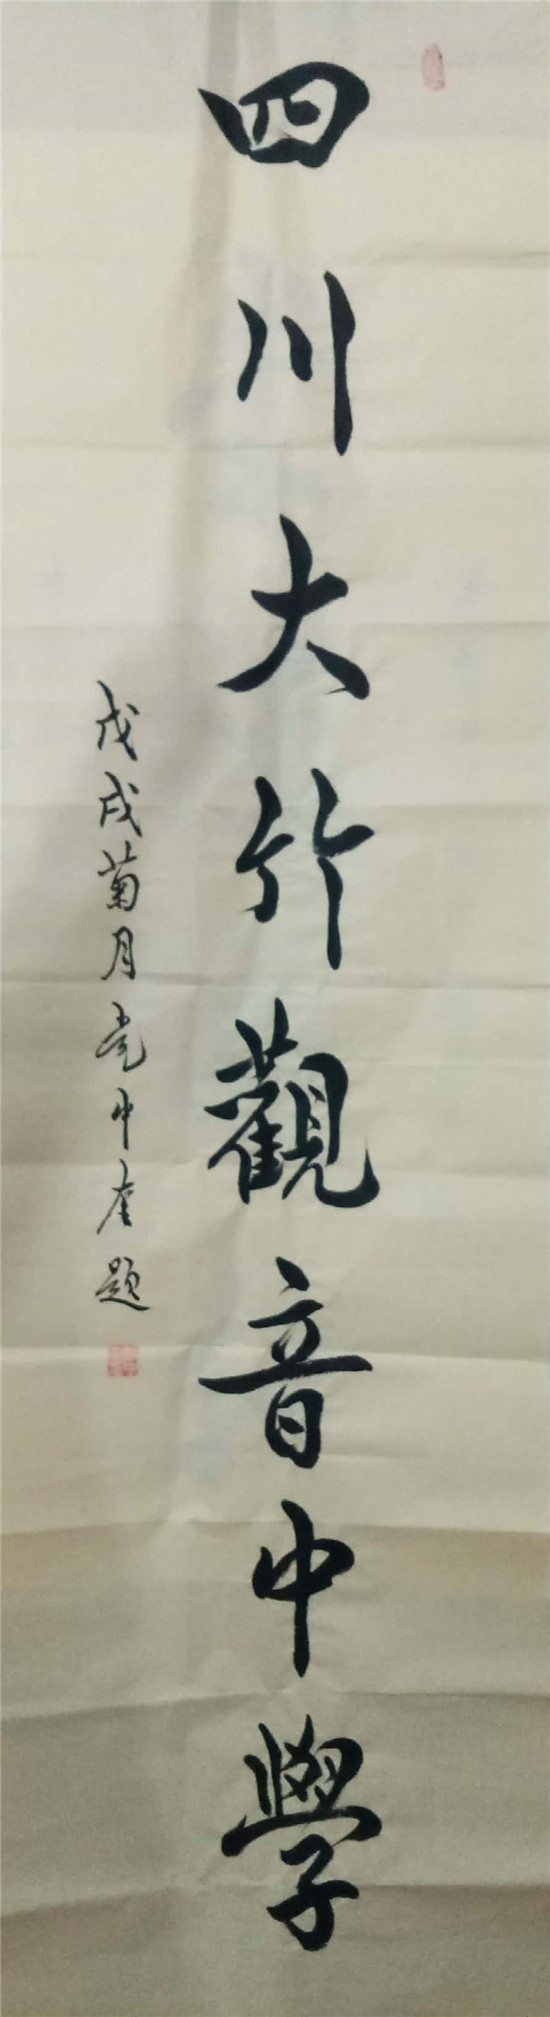 四川大竹觀音中學
戊戌菊月 中奎題